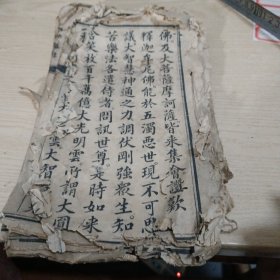 佛及大菩薩摩訶薩皆來集會讚歎
釋迦牟尼佛能於五濁惡世現不可思
議大智慧神通之力調伏剛強衆生知
苦樂法各遣侍者問訊世尊是時如來
含笑放百千萬億大光明雲所謂大圓
雲大智